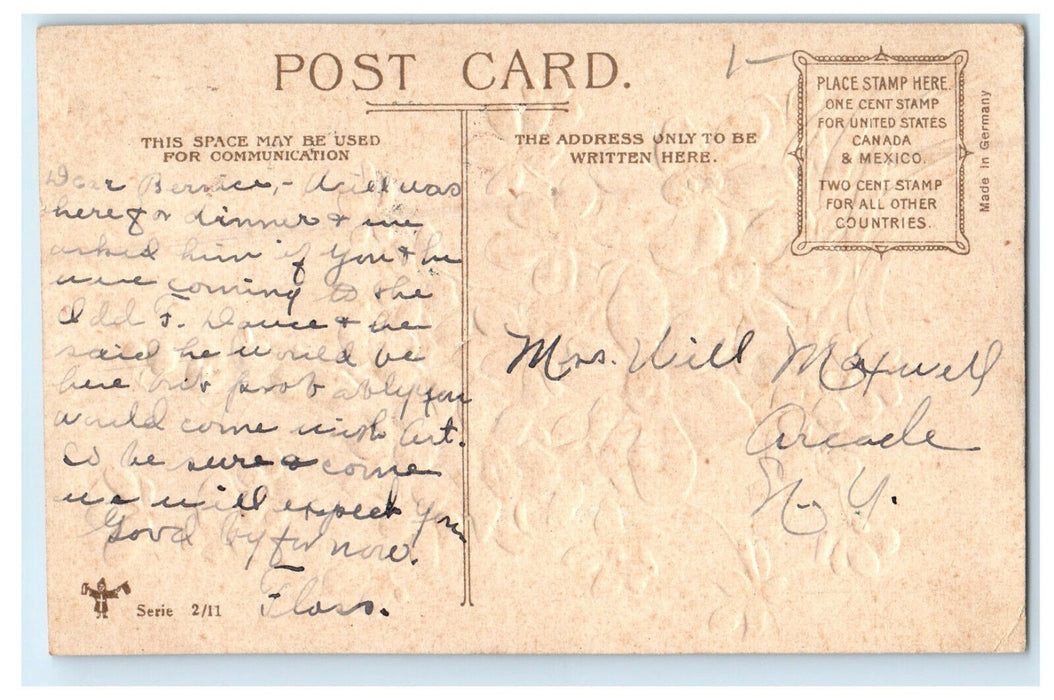 POST CARD.
THIS SPACE MAY BE USED
FOR COMMUNICATION
Dear Bernice,- Will was
here for dinner & we
asked him if you & he
were coming to the
Odd F. Dance & he
said he would be
here but probably you
would come with Art.
So be sure & come
we will expect you
Good by for now.
Floss.
Serie 2/11
THE ADDRESS ONLY TO BE
WRITTEN HERE.
Mrs. Will Maxwell
Arcade
N. Y.
PLACE STAMP HERE.
ONE CENT STAMP
FOR UNITED STATES
CANADA
& MEXICO.
TWO CENT STAMP
FOR ALL OTHER
COUNTRIES.
Made in Germany